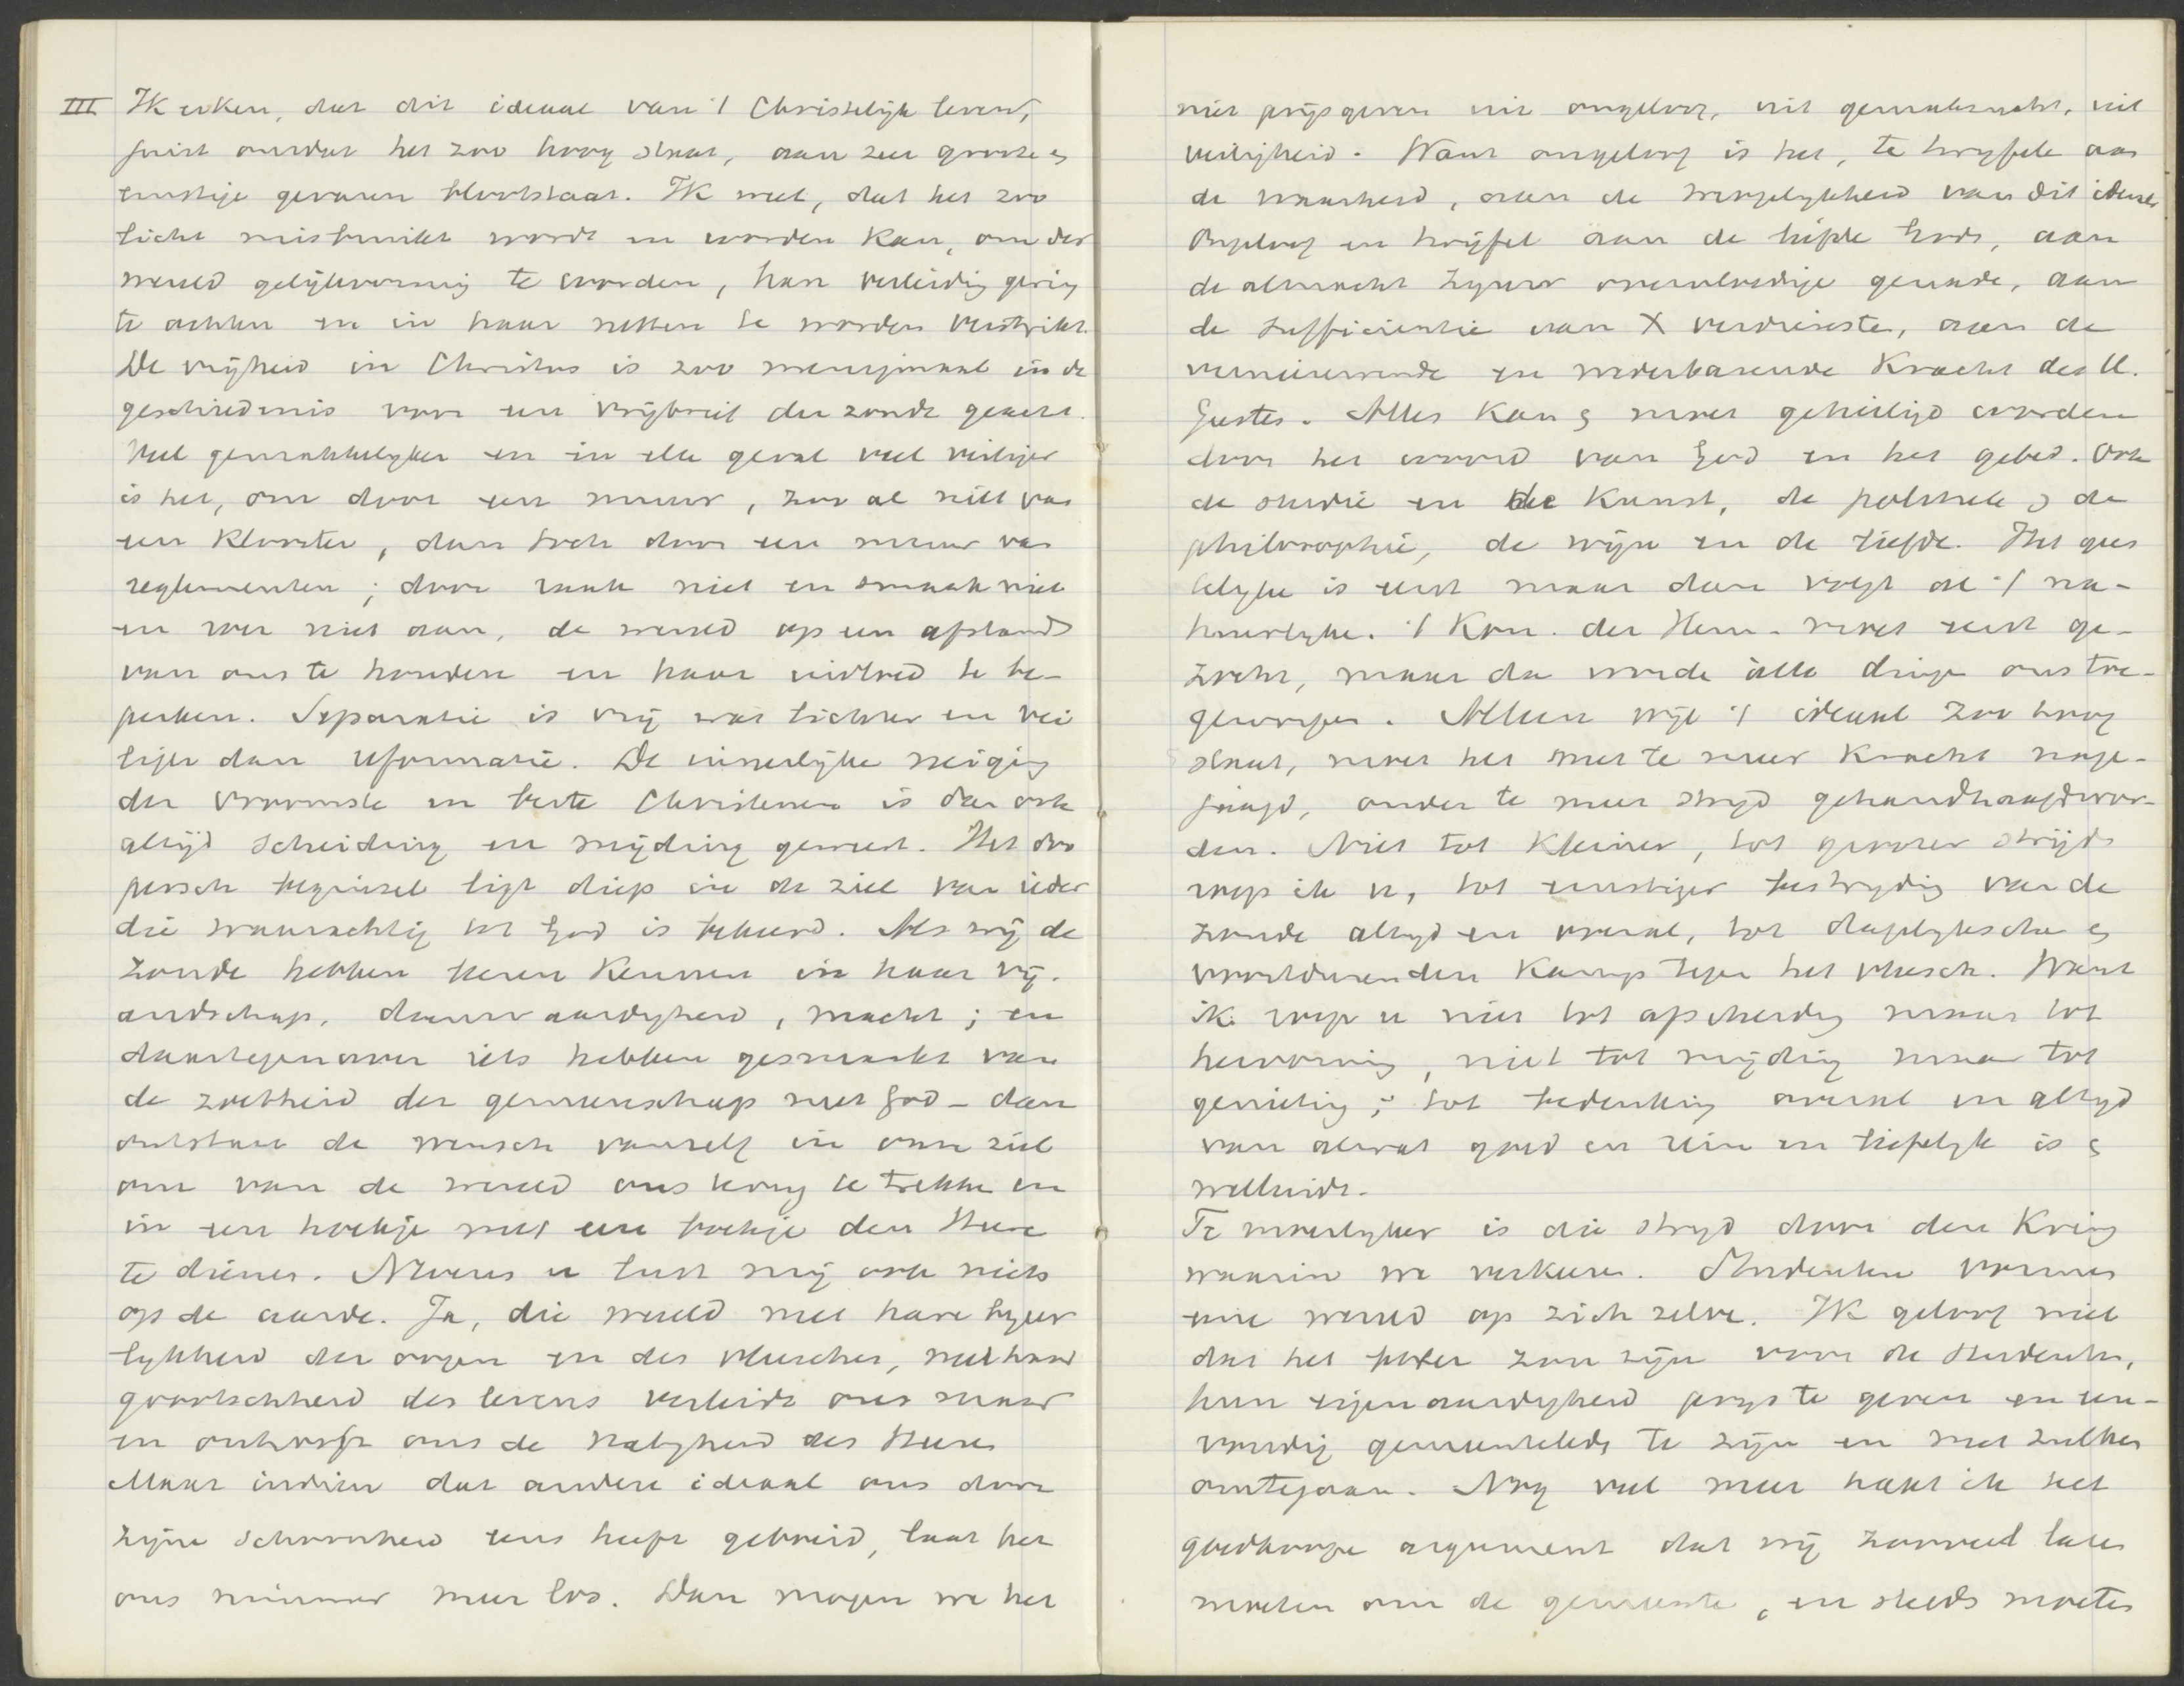 III Ik erken, dat dit ideaal van 't Christelijk leven,
juist omdat het zoo hoog staat, aan zeer groote en
ernstige gevaren blootstaat. Ik weet, dat het zoo
licht misbruikt wordt en worden kan, om der
wereld gelijkvormig te worden, haar verleiding gering
te achten en in haar netten te worden verstrikt.
De vrijheid in Christus is zoo menigmaal in de
geschiedenis voor een vrijbrief der zonde geacht.
Veel gemakkelijker en in elk geval veel veiliger
is het, om door een muur, zoo al niet van
een klooster, dan toch door een muur van
reglementen; door raak niet en smaak niet
en roer niet aan, de wereld op een afstand
van ons te houden en haar invloed te be-
perken. Separatie is vrij wat lichter en vei
liger dan reformatie. De innerlijke neiging
der vroomste en beste Christenen is dan ook
altijd scheiding en mijding geweest. Het doo
persch beginsel ligt diep in de ziel van ieder
die waarachtig tot God is bekeerd. Als wij de
zonde hebben leeren kennen in haar vij-
andschap, doemwaardigheid, macht; en
daartegenover iets hebben gesmaakt van
de zoetheid der gemeenschap met God - dan
ontstaat de wensch vanzelf in onze ziel
om van de wereld ons terug te trekken en
in een hoekje met een boekje den Heere
te dienen. Nevens u lust mij ook niets
op de aarde. Ja, die wereld met hare begeer
lykheid der oogen en des vleesches, met haar
grootschheid des levens verleidt ons maar
en ontrooft ons de zaligheid des Heeren
Maar indien dat andere ideaal ons door
zijne schoonheid eens heeft geboeid, laat het
ons nimmer meer los. Dan mogen we het
niet prijsgeven uit ongeloof, uit gemakzucht, uit
veiligheid. Want ongeloof is het, te twijfelen aan
de waarheid, aan de mogelijkheid van dit ideaal
Ongeloof en twijfel aan de liefde Gods, aan
de almacht Zijner overvloedige genade, aan
de sufficientie van X verdienste, aan de
vernieuwende en wederbarende kracht des H.
Geestes. Alles kan en moet geheiligd worden
door het woord van God en het gebed. Ook
de studie en de kunst, de politiek en de
philosophie, de wijn en de liefde. Het gees
telijke is eerst maar dan volgt ook 't na-
tuurlijke. 't Kon. der Hem. moet eerst ge-
zocht, maar dan worden alle dingen ons toe-
geworpen. Alleen wijl 't ideaal zoo hoog
staat, moet het met te meer kracht nage-
jaagd, onder te meer strijd gehandhaafd wor-
den. Niet tot kleiner, tot grooter strijd
roep ik u, tot ernstiger bestrijding van de
zonde altijd en overal, tot dagelijkschen en
voortdurenden kamp tegen het vleesch. Want
ik roep u niet tot afscheiding maar tot
hervorming, niet tot mijding maar tot
genieting; tot bedenking overal en altijd
van alwat goed en rein en liefelijk is en
welluidt.
Te moeilijker is die strijd door den kring
waarin we verkeeren. Studenten vormen
eene wereld op zich zelve. Ik geloof niet
dat het beter zou zijn voor de studenten,
hun eigenaardigheid prijs te geven en een-
voudig gemeenteleden te zijn en met zulken
omtegaan. Nog veel meer haat ik het
goedkoope argument dat wij zooveel laten
moeten om de gemeente, en steeds moeten